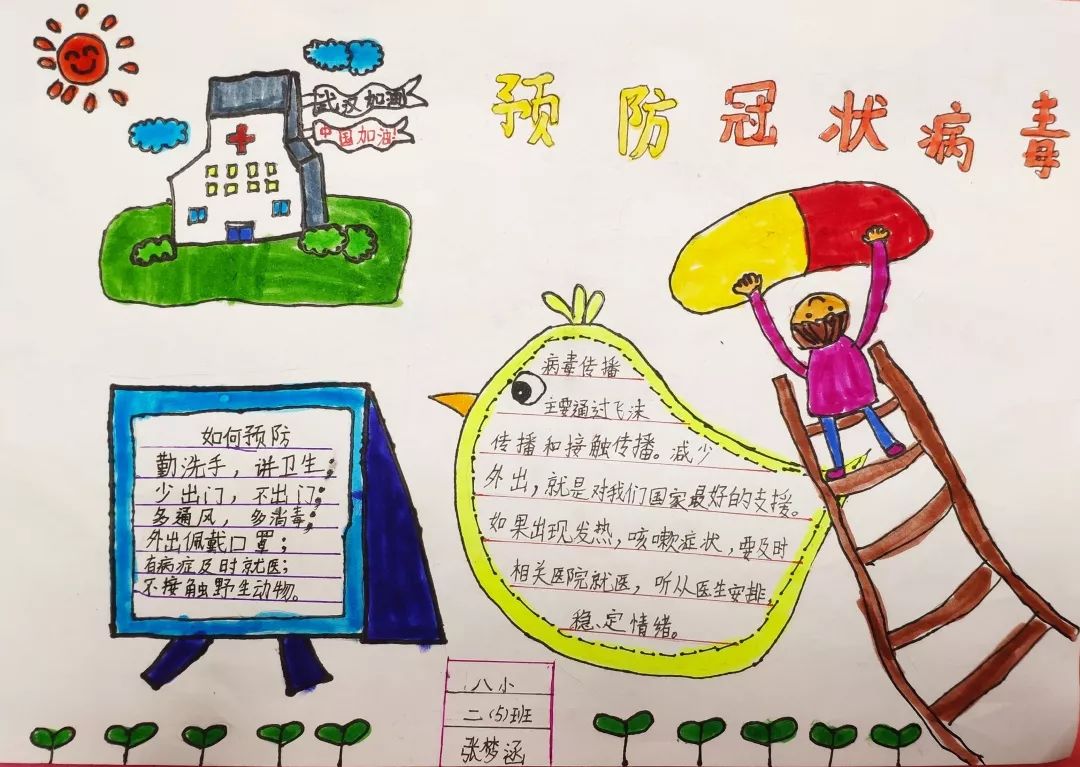 预防冠状病毒
武汉加油
中国加油!
病毒传播
主要通过飞沫
传播和接触传播。减少
外出,就是对我们国家最好的支援。
如果出现发热,咳嗽症状,要及时
相关医院就医,听从医生安排,
稳定情绪。
如何预防
勤洗手,讲卫生;
少出门,不出门;
多通风,多消毒;
外出佩戴口罩;
有病症及时就医;
不接触野生动物。
八小
二(5)班
张梦涵